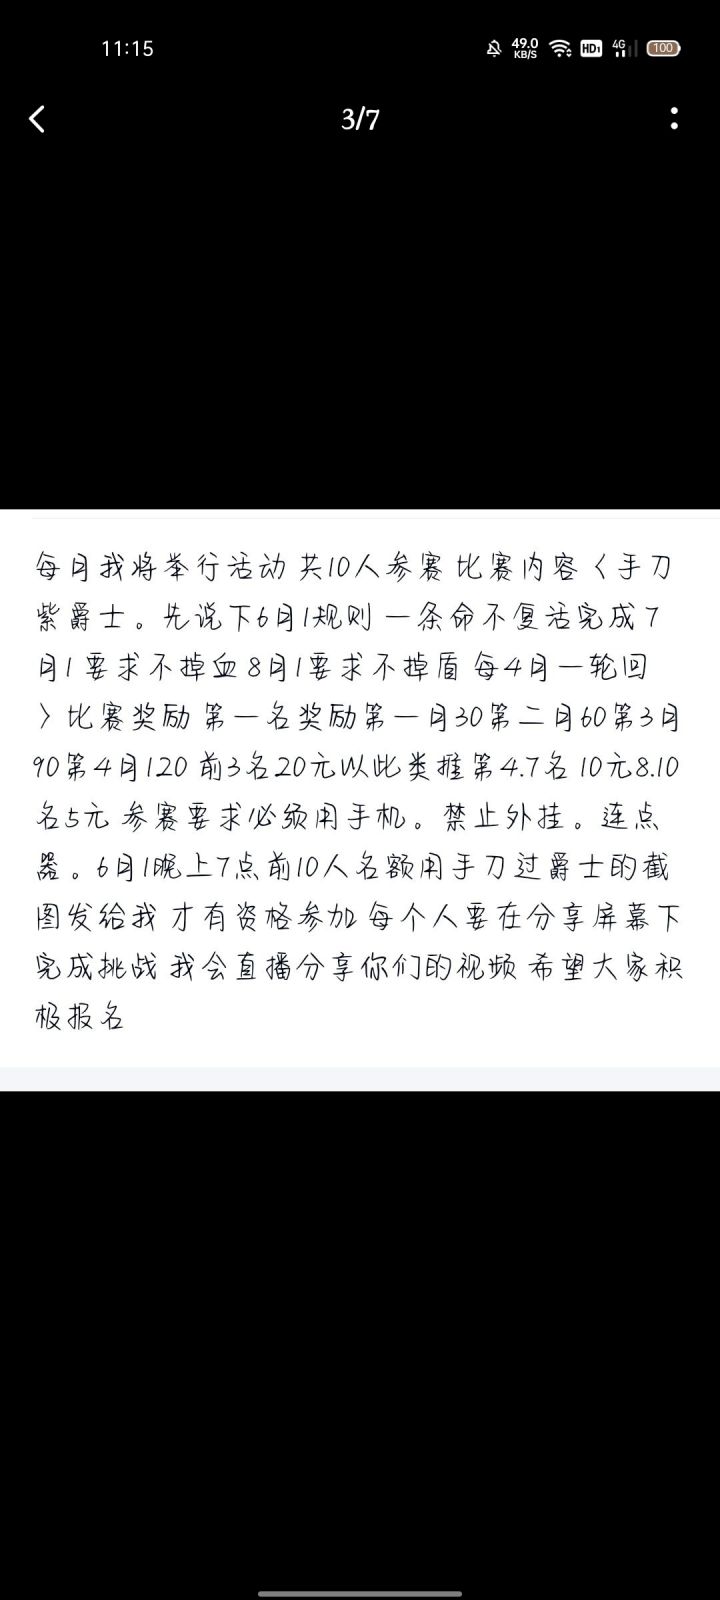 11:15
49.0 KB/S HD1 4G 100
3/7
每月我将举行活动 共10人参赛 比赛内容〈手刀
紫爵士。先说下6月1规则 一条命不复活完成 7
月1 要求不掉血 8月1要求不掉盾 每4月一轮回
〉比赛奖励 第一名奖励第一月30第二月60第3月
90第4月120 前3名20元以此类推第4.7名 10元8.10
名5元 参赛要求必须用手机。禁止外挂。连点
器。6月1晚上7点前10人名额用手刀过爵士的截
图发给我 才有资格参加 每个人要在分享屏幕下
完成挑战 我会直播分享你们的视频 希望大家积
极报名